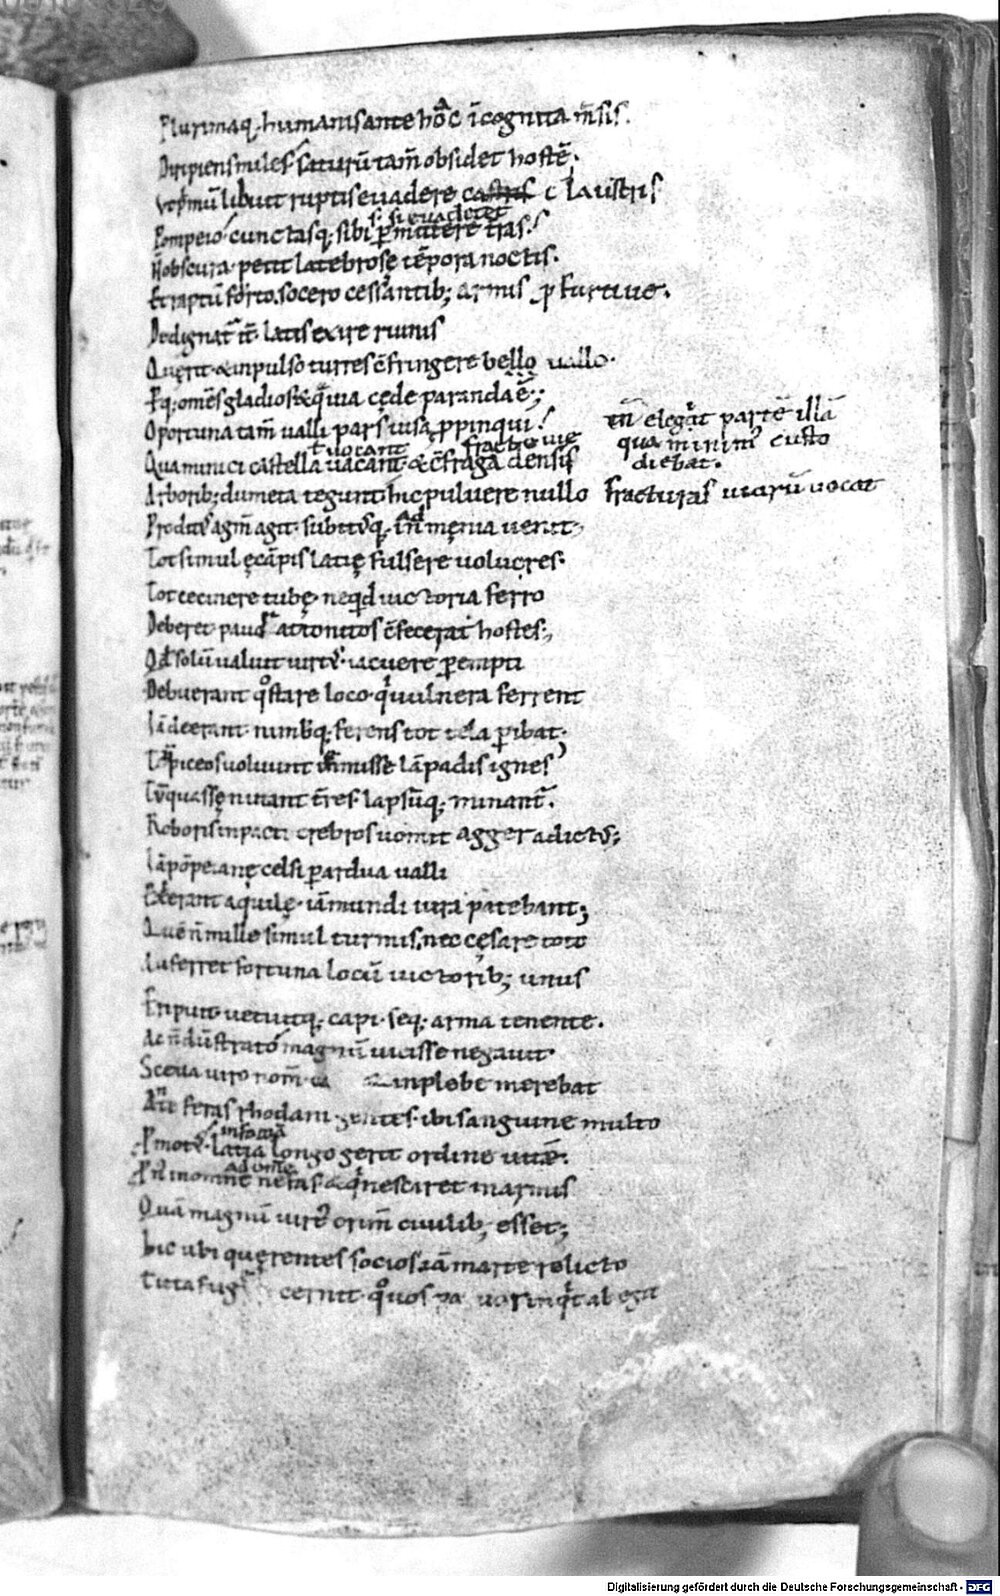 Plurimaq; humanis ante hoc īcognita m̄sis.
Diripiens miles saturū tam̄ obsidet hostē.
libuit ruptis euadere castris claustris
s. si euaderet
Pompeio cunctasq; sibi p̄mittere t̄ras.
N̄ obscura petit latebrosę tēpora noctis.
Et raptū furto socero cessantib; armis p furtiue.
Dedignat̄ it̄ latis exire ruinis
Quęrit & inpulso turres cfringere bello uallo.
Pq; omēs gladios & q̄ uia cęde parandaē;
Oportuna tam̄ ualli pars uisa ppinqui.
ī elegāt partē illā
qua minim custo
diebat.
ł uocant fractę uię
Qua minuci castella uacant & cfraga densis
Arborib; dumeta tegunt hic puluere nullo
fracturas uiarū uocat
ad
Prodit' agm̄ agit subit'q; in męnia uenit
Tot simul ę cāpis latię fulsere uolucres.
Tot cecinere tubę neq̄d uictoria ferro
Deberet pauor attonitos cfecerat hostes;
Qd̄ solū ualuit uirt' iacuere pempti
Debuerant q° stare loco q̄ uulnera ferrent
Iā deerant nimb'q; ferens tot tela pibat.
Tū piceos uoluunt inmisse lāpadis ignes
Tū quassę nutant t̄res lapsūq; minant̄.
Roboris inpacti crebros uomit agger ad ict';
Iā pōpeianę celsi p ardua ualli
Exierant aquilę iā mundi iura patebant;
Quē n̄ mille simul turmis nec cęsare toto
Auferret fortuna locū uictorib; unus
Eripuit uetuitq; capi seq; arma tenente.
Ac n̄dū strato magnū uicisse negauit
Sceua uiro nom̄ ca in plebe merebat
An̄t feras rhodani gentes ibi sanguine multo
in formā
Pmot' latia longo gerit ordine uitē.
ad om̄e
Pn' in omne nefas & q̄ nesciret in armis
Quā magnū uirt' crim̄ ciuilib; esset;
Hic ubi quęrentes socios iā marte relicto
Tuta fugę cernit q°s pauor inq̄t abegit